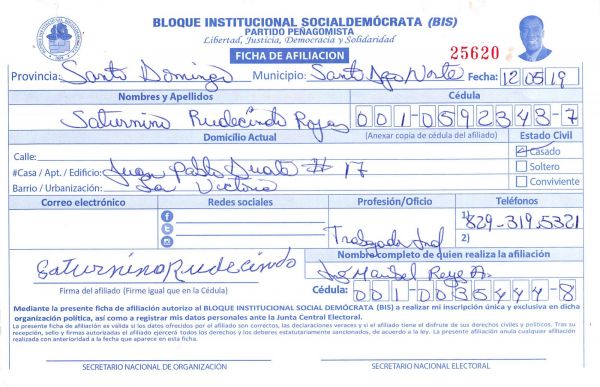 BLOQUE INSTITUCIONAL SOCIALDEMÓCRATA (BIS)
PARTIDO PEÑAGOMISTA
Libertad, Justicia, Democracia y Solidaridad
FICHA DE AFILIACION
25620
Provincia: Santo Domingo Municipio: Santo Dgo Norte Fecha: 12 05 19
Nombres y Apellidos Cédula
Saturnino Rudecindo Rojas 001-0592343-7
Domicilio Actual (Anexar copia de cédula del afiliado) Estado Civil
Calle: Casado
#Casa / Apt. / Edificio: Juan Pablo Duarte # 17 Soltero
Barrio / Urbanización: La Victoria Conviviente
Correo electrónico Redes sociales Profesión/Oficio Teléfonos
1) 829-319.5321
Trabajador 2)
Nombre completo de quien realiza la afiliación
Saturnino Rudecindo Maribel Reyes
Firma del afiliado (Firme igual que en la Cédula) Cédula: 001-0035444-8
Mediante la presente ficha de afiliación autorizo al BLOQUE INSTITUCIONAL SOCIAL DEMÓCRATA (BIS) a realizar mi inscripción única y exclusiva en dicha
organización política, así como a registrar mis datos personales ante la Junta Central Electoral.
La presente ficha de afiliación es válida si los datos ofrecidos por el afiliado son correctos, las declaraciones veraces y si el afiliado tiene el disfrute de sus derechos civiles y políticos. Tras su
recepción, sello y firmas autorizadas el afiliado ejercerá todos los derechos y los deberes estatutariamente sancionados, de acuerdo a la ley. La presente afiliación anula cualquier afiliación
realizada con anterioridad a la fecha que aparece en esta ficha.
SECRETARIO NACIONAL DE ORGANIZACIÓN SECRETARIO NACIONAL ELECTORAL